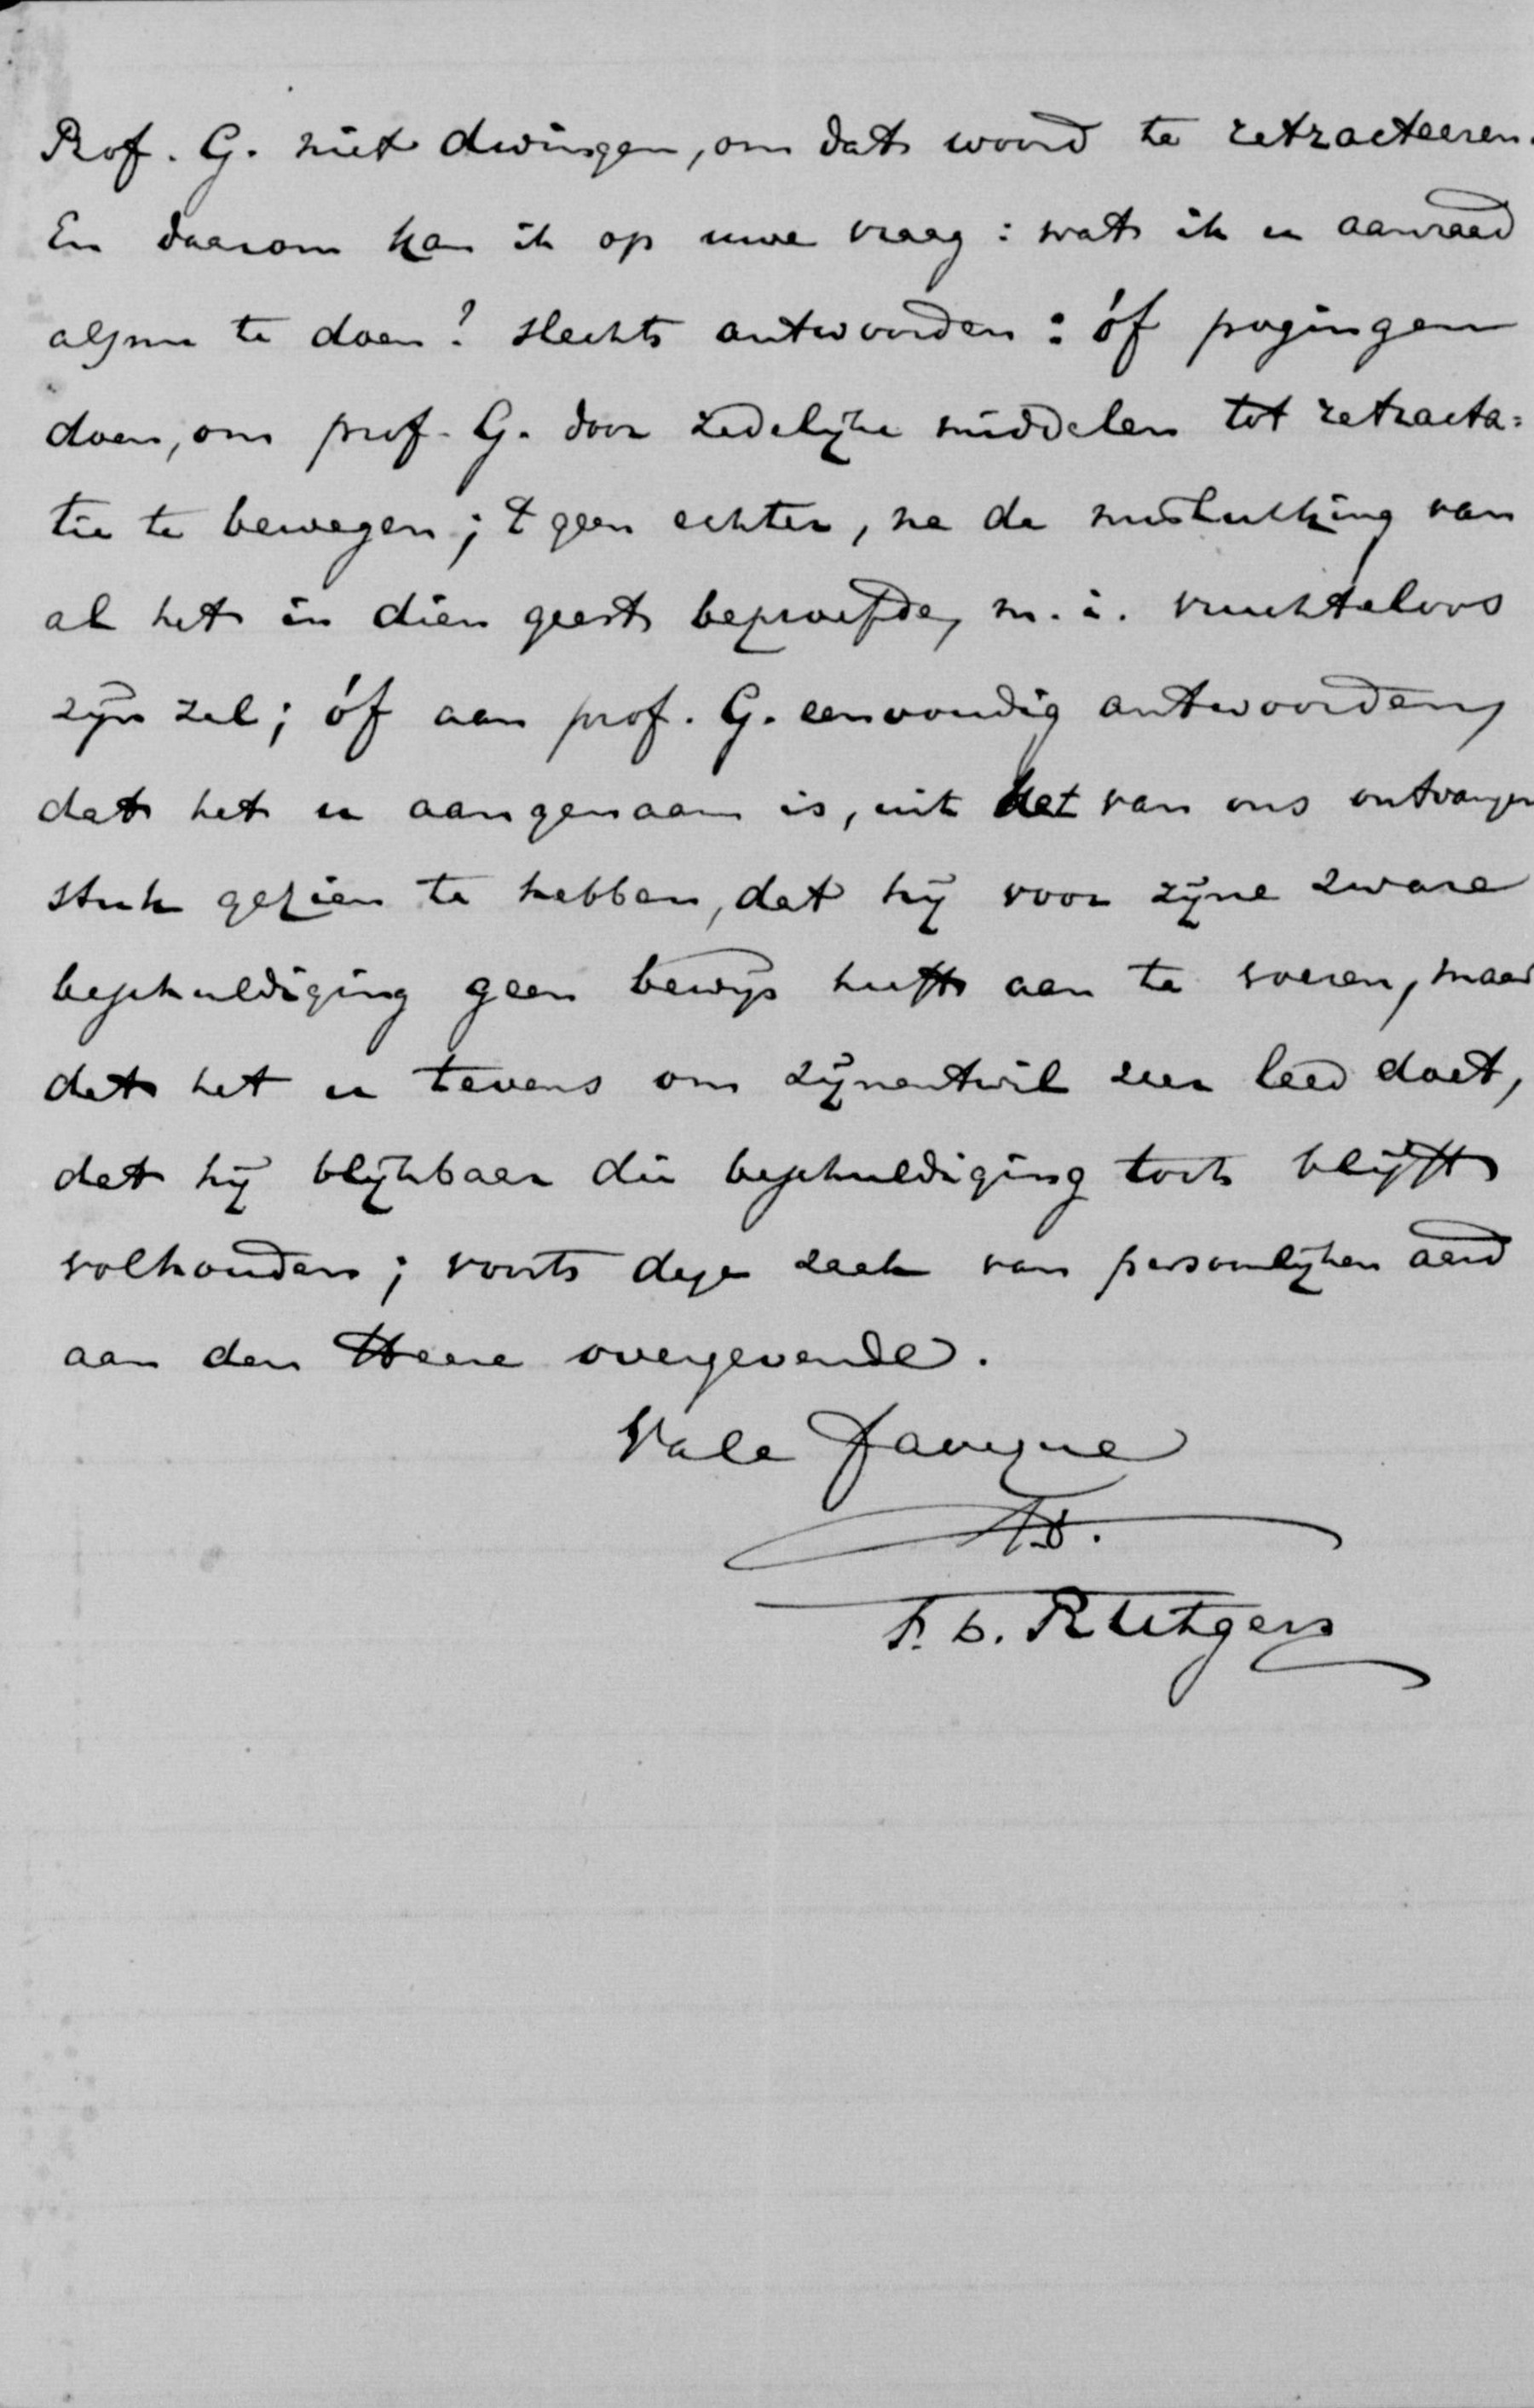 Prof. G. niet dwingen, om dat woord te retracteeren.
En daarom kan ik op uwe vraag: wat ik u aanraad
alsnu te doen? slechts antwoorden: óf pogingen
doen, om prof. G. door zedelijke middelen tot retracta=
tie te bewegen; 't geen echter, na de mislukking van
al het in dien geest beproefde, m. i. vruchteloos
zijn zal; óf aan prof. G. eenvoudig antwoorden,
dat het u aangenaam is, uit het van ons ontvangen
stuk gezien te hebben, dat hij voor zijne zware
beschuldiging geen bewijs heeft aan te voeren, maar
dat het u tevens om zijnentwil zeer leed doet,
dat hij blijkbaar die beschuldiging toch blijft
volhouden; voorts deze zaak van persoonlijken aard
aan den Heere overgevende.
Vale faveque
F. L. Rutgers